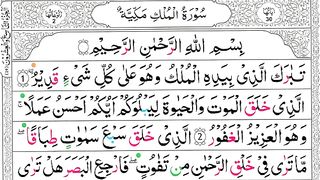 سُوْرَةُ الْمُلْكِ مَكِّيَّةٌ
بِسْمِ اللّٰهِ الرَّحْمٰنِ الرَّحِيْمِ
تَبٰرَكَ الَّذِيْ بِيَدِهِ الْمُلْكُ وَهُوَ عَلٰى كُلِّ شَيْءٍ قَدِيْرٌ ۙ﴿1﴾
الَّذِيْ خَلَقَ الْمَوْتَ وَالْحَيٰوةَ لِيَبْلُوَكُمْ اَيُّكُمْ اَحْسَنُ عَمَلًا
وَهُوَ الْعَزِيْزُ الْغَفُوْرُ ﴿2﴾ الَّذِيْ خَلَقَ سَبْعَ سَمٰوٰتٍ طِبَاقًا
مَا تَرٰى فِيْ خَلْقِ الرَّحْمٰنِ مِنْ تَفٰوُتٍ فَارْجِعِ الْبَصَرَ هَلْ تَرٰى